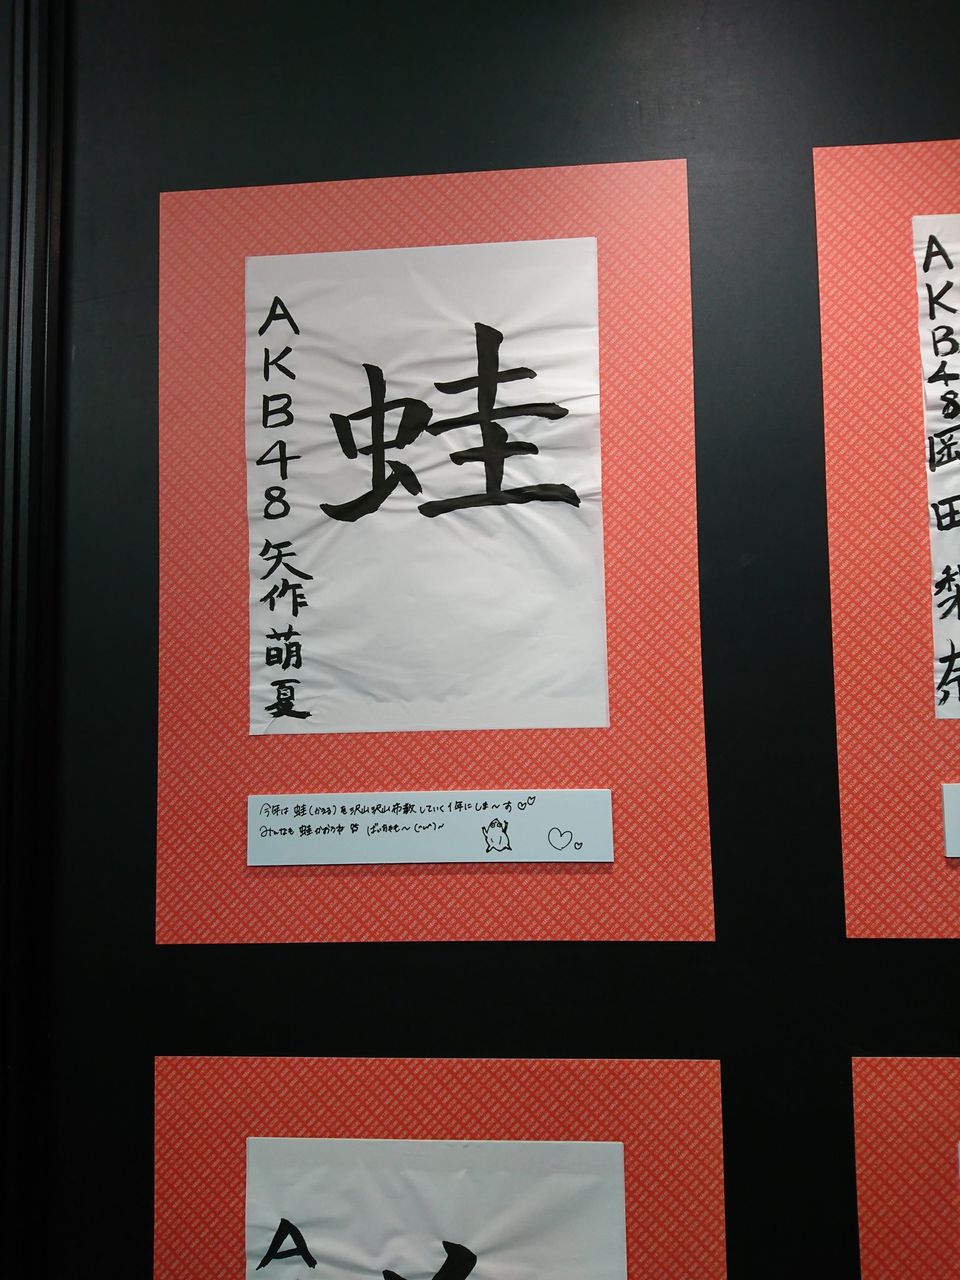 蛙
AKB48 矢作萌夏
今年は 蛙(かえる)を沢山沢山布教していく1年にしま〜す
みんなも 蛙
AKB48 岡田梨奈
A